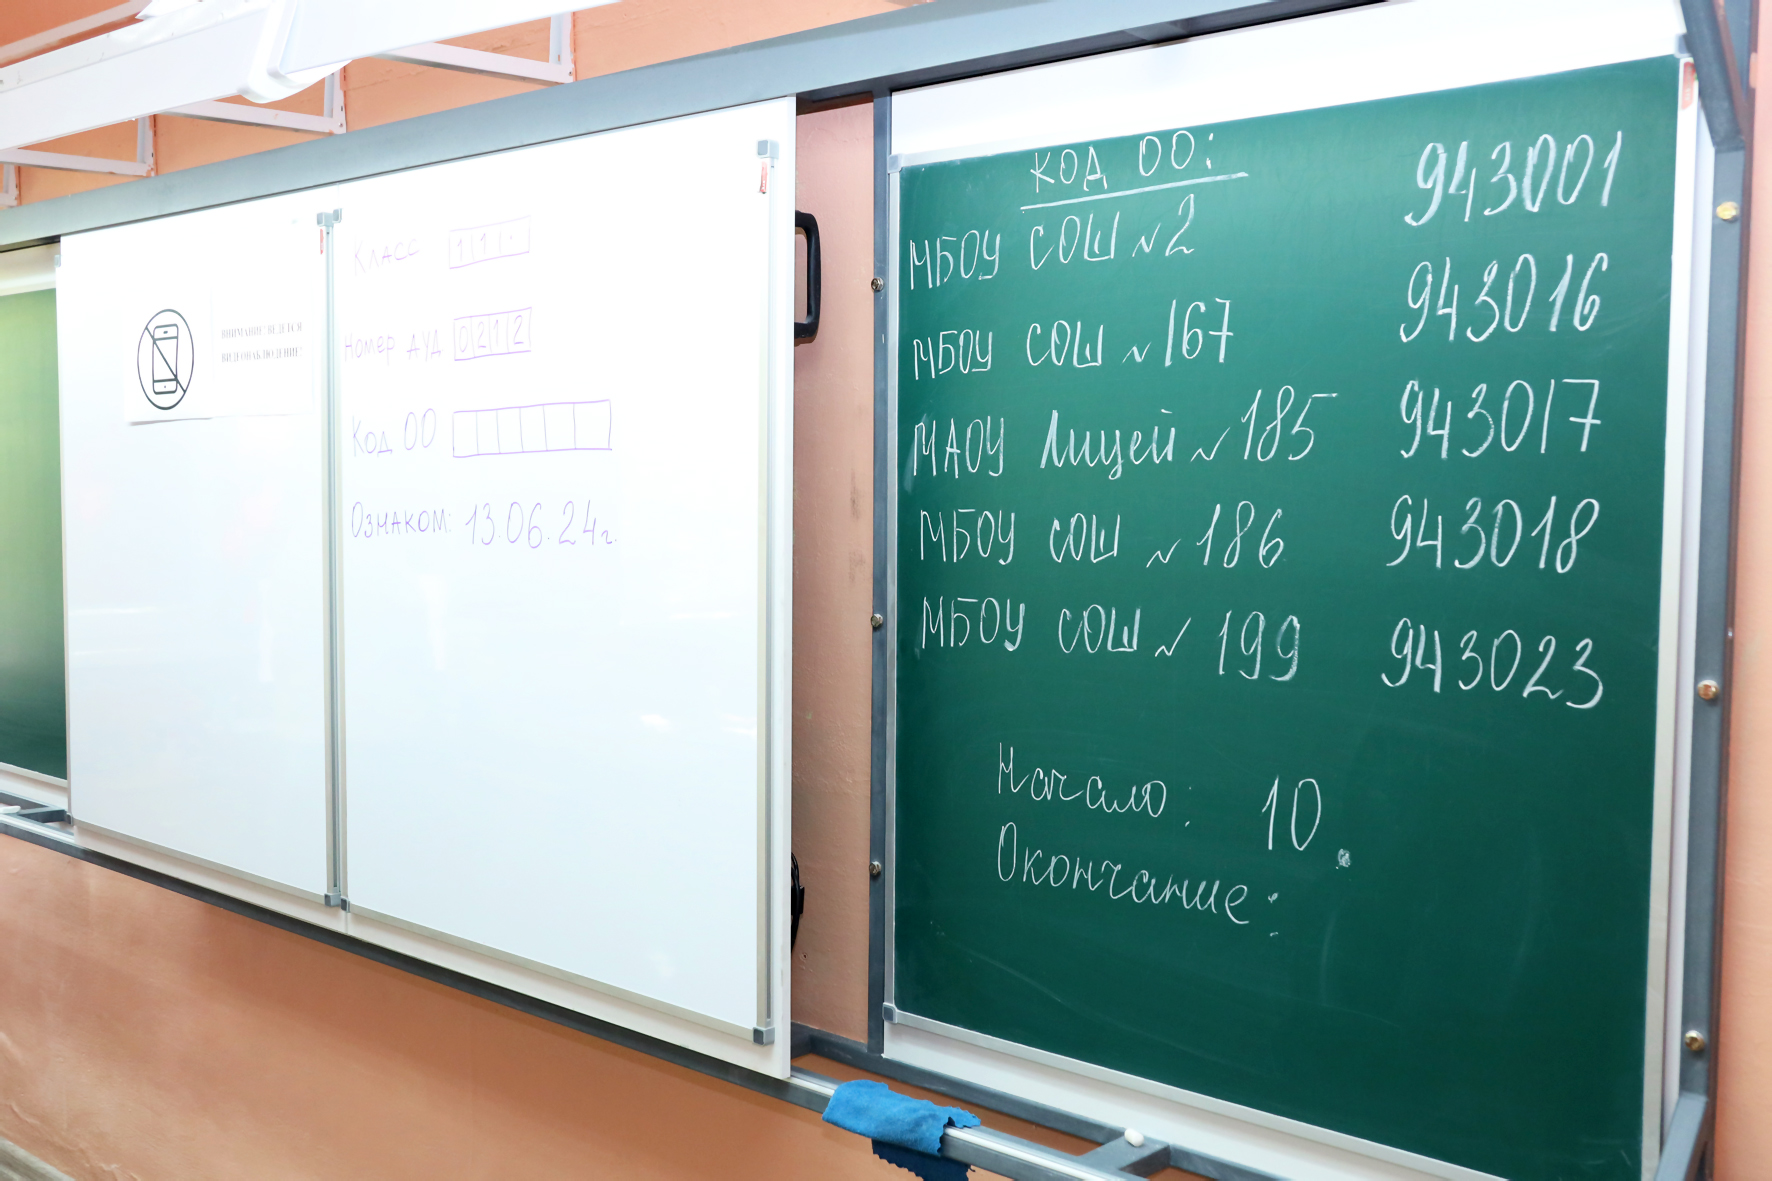 ВНИМАНИЕ! ВЕДЕТСЯ
ВИДЕОНАБЛЮДЕНИЕ!
Класс 11
Номер ауд 0212
Код ОО
Ознаком: 13.06.24г.
КОД ОО:
МБОУ СОШ №2 943001
МБОУ СОШ №167 943016
МАОУ Лицей №185 943017
МБОУ СОШ №186 943018
МБОУ СОШ №199 943023
Начало: 10.
Окончание: